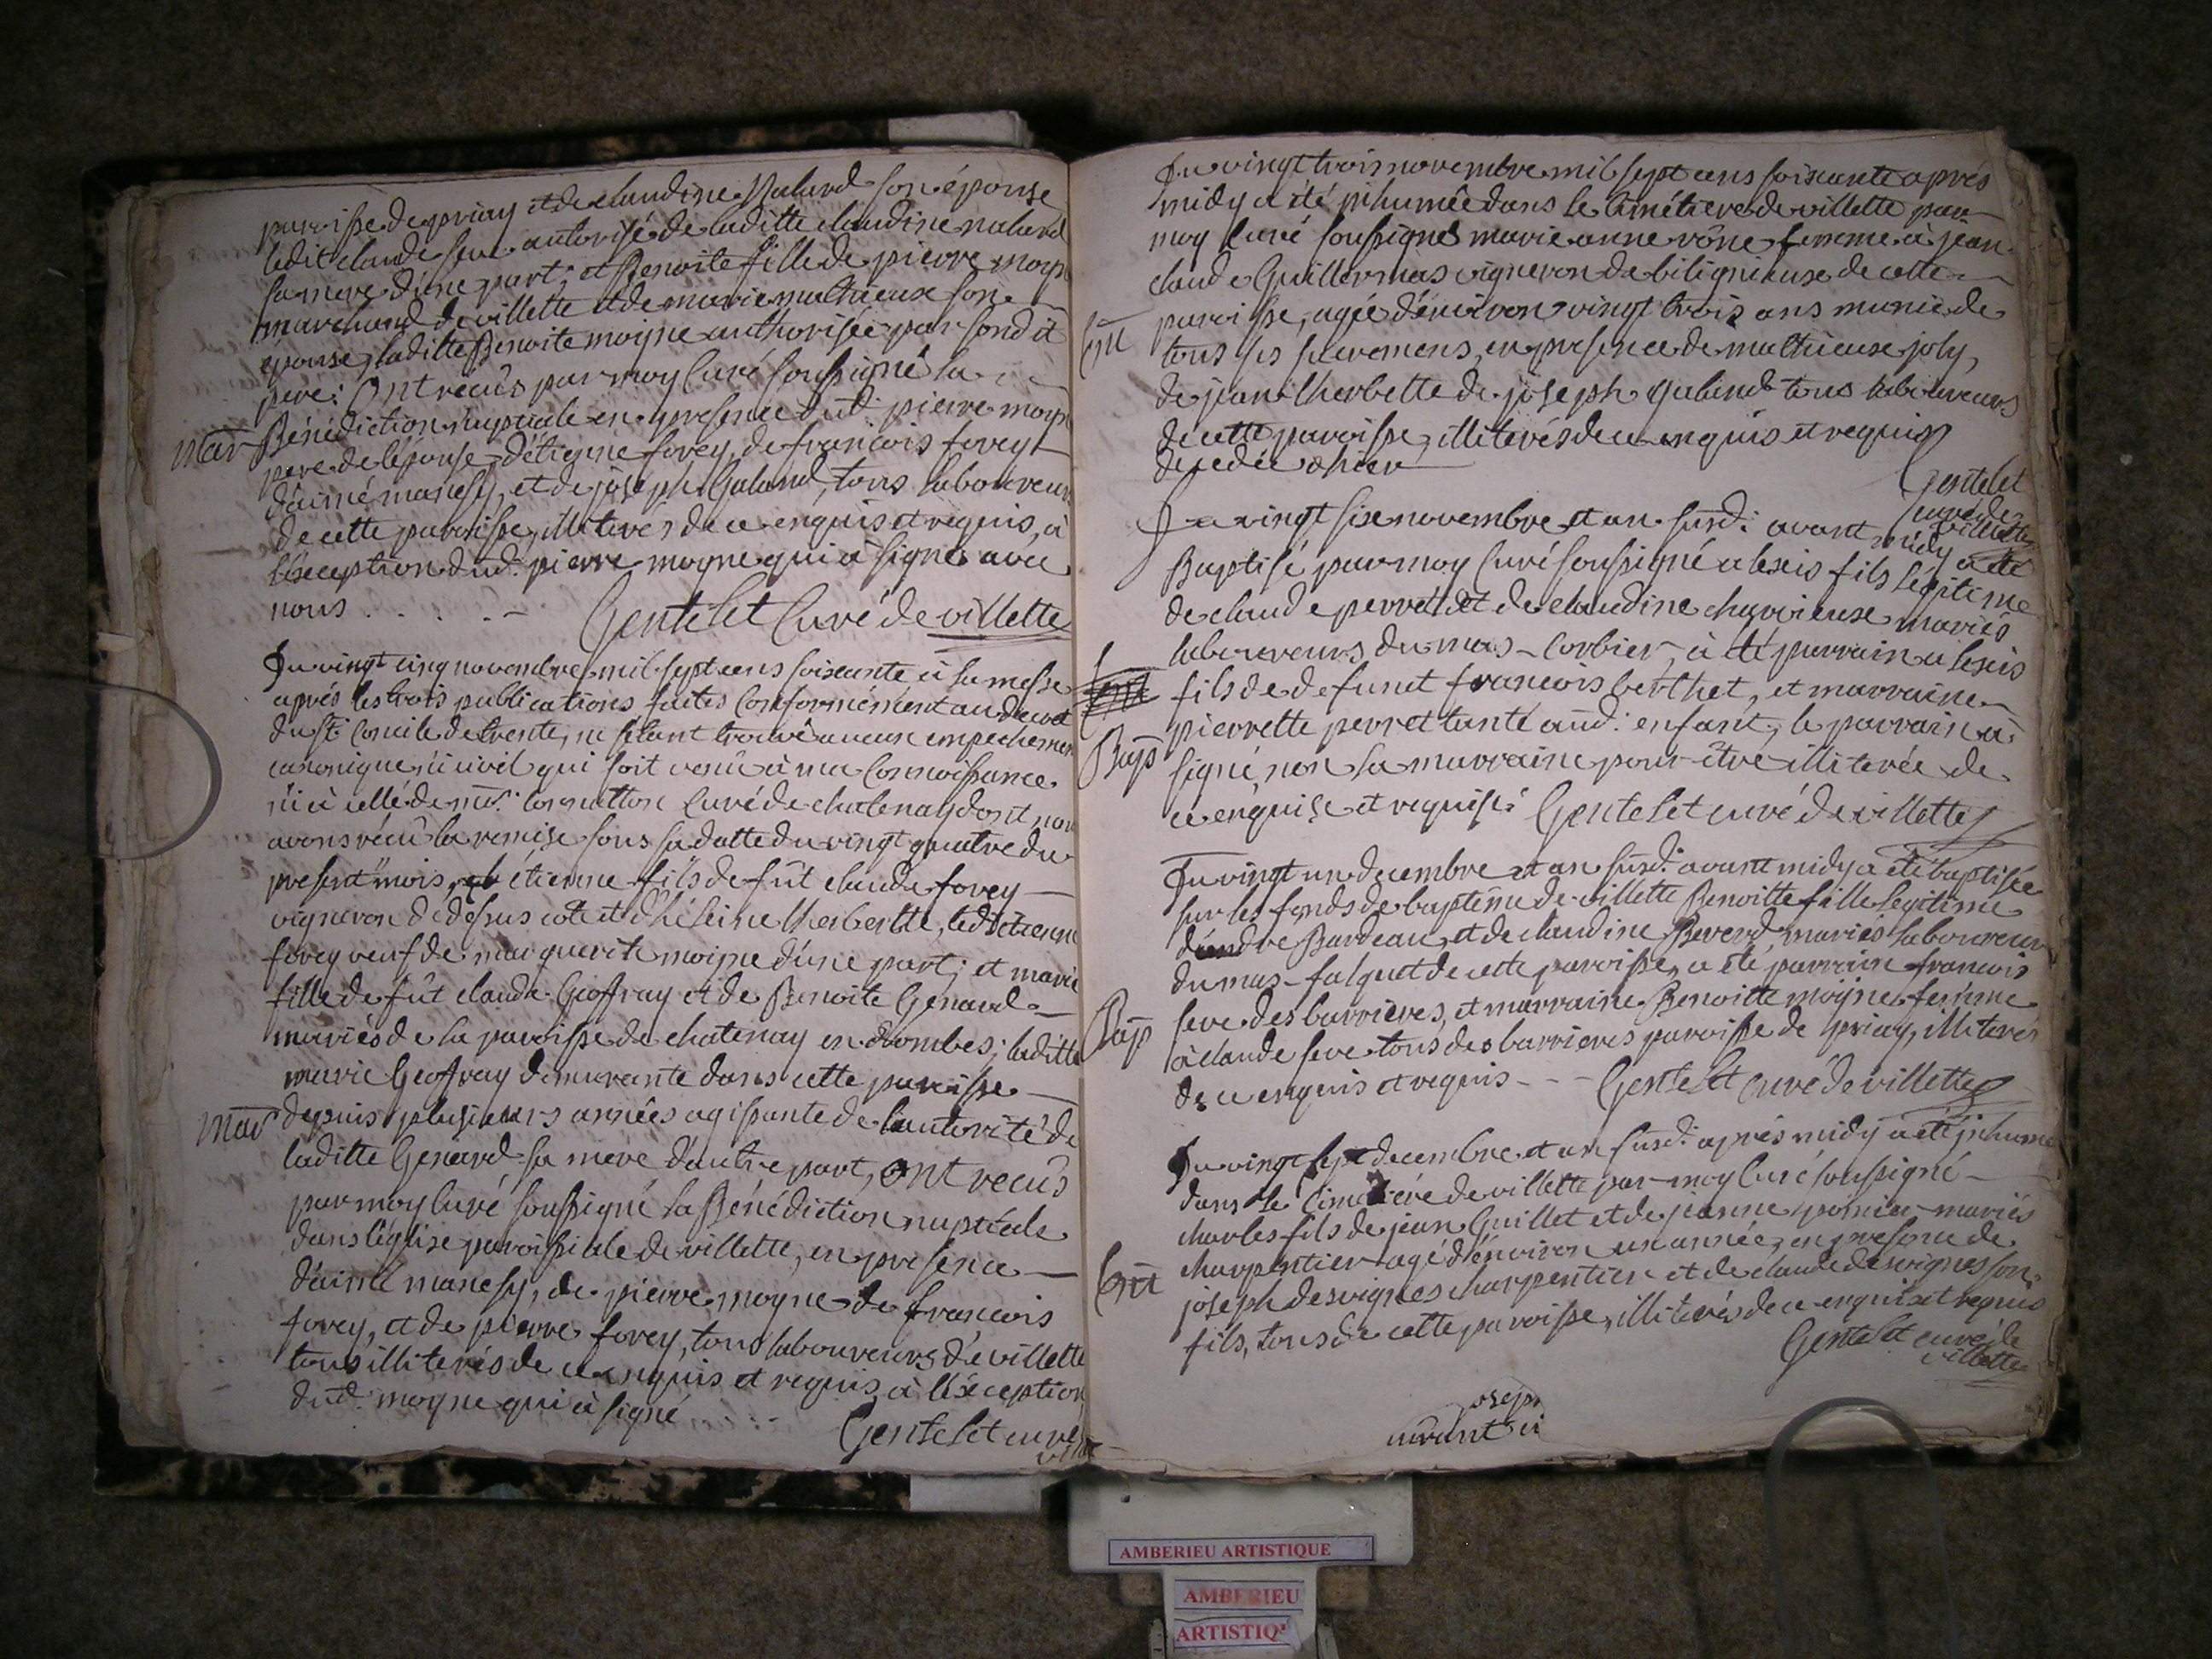 paroisse de priay et de claudine Nalard son épouse
ledit claude seve autorisé de laditte claudine nalard
sa mere d'une part; et Benoite fille de pierre moyne
marchand de villette et de marie mathieux son
epouse, laditte Benoite moyne authorisée par sondit
pere: Ont recûs par moy Curé soussigné la
mar Bénédiction nuptiale en presence dud: pierre moyne
pere de l'épouse, d'étienne forey, de francois forey
d'aimé manesy, et de joseph Galand, tous laboureurs
de cette paroisse, illiterés de ce enquis et requis, à
l'exception dud: pierre moyne qui à signé avec
nous . . . . - Gentelet Curé de villette
Du vingt cinq novembre mil sept cens soixante à la messe
après les trois publications faites Conformément au decret
du st: Concile de trente, ne s'étant trouvé aucun empechement
canonique, ni civil qui soit venû à ma Connoissance
ni à celle de mr: Cornetton Curé de chatenay dont nous
avons récû la remise sous sa datte du vingt quatre du
present mois, étienne fils de fût claude forey
vigneron de dessus cote et d'héleine therbette, ledit étienne
forey veuf de marguerite moine d'une part; et marie
fille de fût claude Geoffray et de Benoite Genard
mariés de la paroisse de chatenay en dombes; laditte
marie Geoffray demeurante dans cette paroisse
mar depuis plusieurs années agissante de l'autorité de
laditte Genard sa mere d'autre part, ont recûs
par moy Curé soussigné la Bénédiction nuptiale
dans l'église paroissiale de villette, en presence
d'aimé manesy, de pierre moyne de francois
forey, et de pierre forey, tous laboureurs de villette
tous illiterés de ce enquis et requis, à l'exception
dud: moyne qui à signé
Gentelet curé
villette
Du vingt trois novembre mil sept cens soixante après
midy a été inhumée dans le Cimétiere de villette par
moy Curé soussigné marie anne rône femme à jean
claude Guillermas vigneron de biligneux de cette
paroisse, agée d'environ vingt trois ans munie de
Ent tous ses sacremens, en presence de mathieux joly,
de jean therbette de joseph Galand tous laboureurs
de cette paroisse, illiterés de ce enquis et requis
decedée d'hier
Gentelet
curé de
villette
Du vingt six novembre et an susd: avant midy a été
Baptisé par moy Curé soussigné alexis fils légitime
de claude perret et de claudine chavrieux mariés
laboureurs du mas-Corbier, à été parrain alexis
fils de defunct francois berthet, et marraine
pierrette perret tante aud: enfant; le parrain a
Bap signé non la marraine pour être illiterée de
ce enquise et requise Gentelet curé de villette
Du vingt un decembre et an susd: avant midy a été baptisée
sur les fonds de baptême de villette Benoitte fille legitime
d'andre Bardeau, et de claudine Beverd mariés laboureurs
du mas-falquet de cette paroisse, a été parrain francois
seve des barrieres, et marraine Benoitte moyne femme
Bap à claude seve tous des barrieres paroisse de priay, illiterés
de ce enquis et requis - - - Gentelet Curé de villette
Du vingt sept decembre et an susd: après midy a été inhumé
dans le Cimetiére de villette par moy Curé soussigné
charles fils de jean Guillet et de jeanne mariés
charpentier agé d'environ un année, en presence de
Ent joseph desvignes charpentier et de claude desvignes son
fils, tous de cette paroisse, illiterés de ce enquis et requis
Gentelet curé de
villette
oseph
avant
AMBERIEU ARTISTIQUE
AMBERIEU
ARTISTIQ